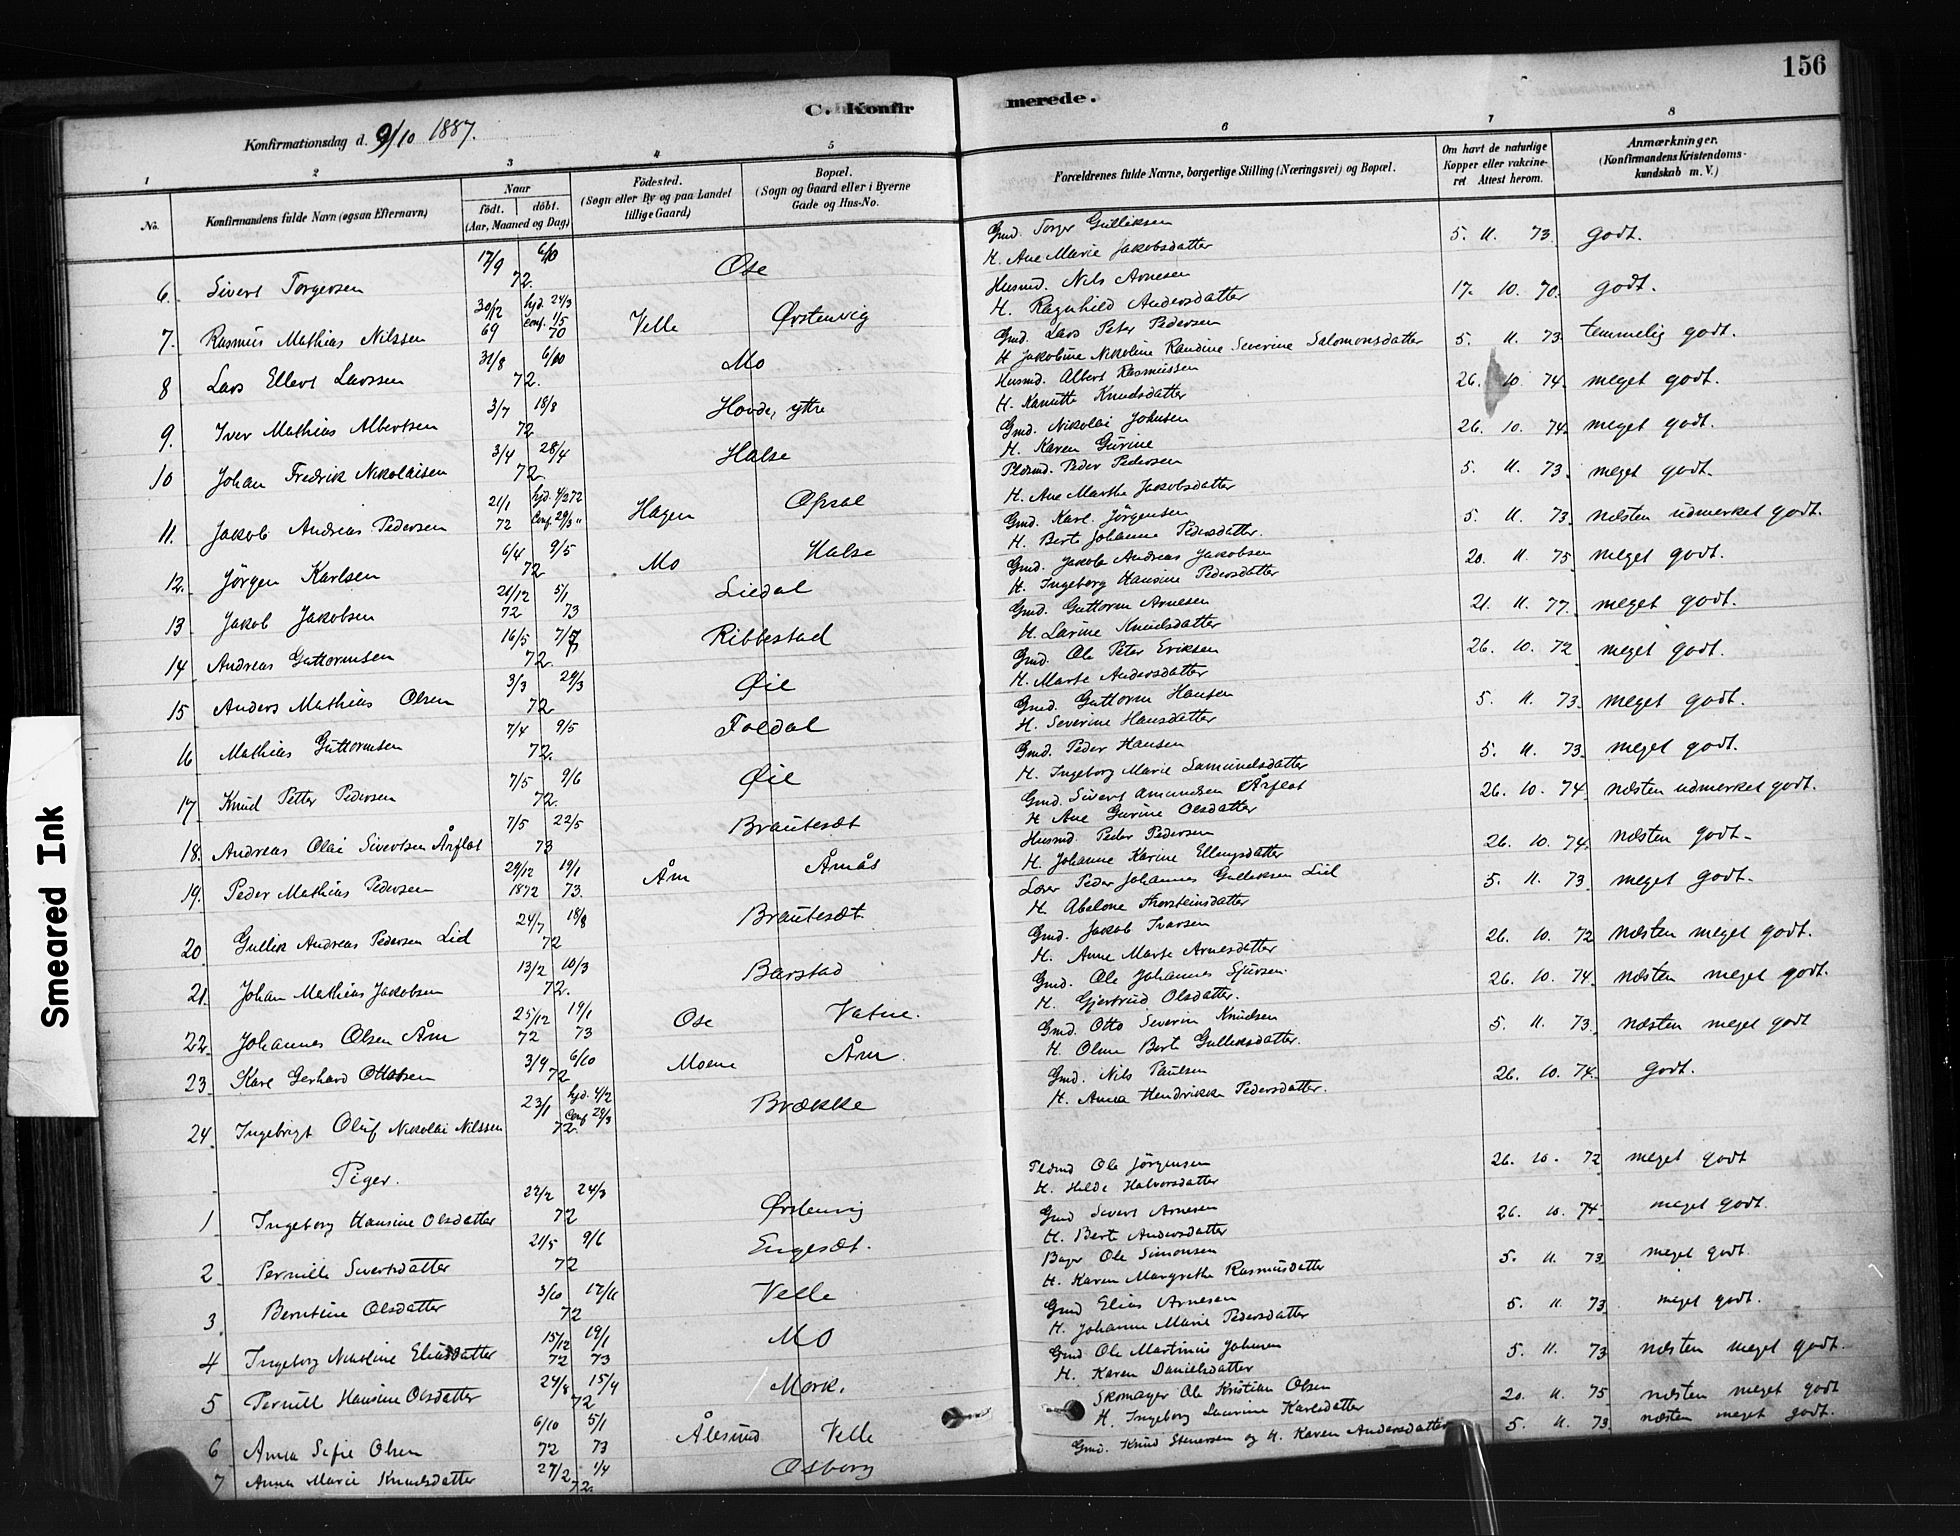 156
C. Konfirmerede.
Konfirmationsdag d. 9/10 1887.
1 2 3 4 5 6 7 8
No. Konfirmandens fulde Navn (ogsaa Efternavn) Naar født. døbt. (Aar, Maaned og Dag) Fødested. (Sogn eller By og paa Landet tillige Gaard) Bopæl. (Sogn og Gaard eller i Byerne Gade og Hus-No. Forældrenes fulde Navne, borgerlige Stilling (Næringsvei) og Bopæl. Om havt de naturlige Kopper eller vakcineret Attest herom. Anmærkninger. (Konfirmandens Kristendomskundskab m. V.)
6. Sivert Torgersen 17/9 6/10 72. Ose Gmd. Torger Gulliksen H. Ane Marie Jakobsdatter 5. 11. 73. godt.
7. Rasmus Mathias Nilssen 30/12 69 hjd. 24/3 Conf. 1/5 70 Velle Ørstenvig Husmd. Nils Arnesen H. Ragnhild Andersdatter 17. 10. 70. godt.
8 Lars Ellert Larssen 31/8 6/10 72. Mo Gmd. Lars Peter Pedersen H Jakobine Nikoline Randine Severine Salomonsdatter 5. 11. 73. temmelig godt.
9. Iver Mathias Albertsen 3/7 18/8 72 Hovde, yttre Husmd. Albert Rasmussen H. Knutte Knudsdatter 26. 10. 74. meget godt.
10 Johan Fredrik Nikolaisen 3/4 28/4 72. Halse Gmd. Nikolai Johnsen H. Karen Gurine 26. 10. 74. meget godt.
11. Jakob Andreas Pedersen 21/1 72 hjd. 4/2 72 Conf. 29/3 " Hagen Opsal Pldsmd. Peder Pedersen H. Ane Marthe Jakobsdatter 5. 11. 73. meget godt.
12. Jörgen Karlsen 6/4 9/5 72 Mo Halse Gmd. Karl Jörgensen H. Berte Johanne Pedersdatter. 5. 11. 73. næsten udmerket godt.
13 Jakob Jakobsen 26/12 72 5/1 73 Liedal Gmd. Jakob Andreas Jakobsen H. Ingeborg Hansine Pedersdatter 20. 11. 75 meget godt.
14 Andreas Guttormsen 16/5 7/7 72. Ribbestad Gmd. Guttorm Arnesen H. Larine Knudsdatter 21. 11. 77. meget godt.
15 Anders Mathias Olsen 3/3 29/3 72. Øie Gmd. Ole Peter Eriksen H. Marte Andersdatter 26. 10. 72 meget godt.
16 Mathias Guttormsen 7/4 9/5 72. Foldal Gmd. Guttorm Hansen H. Severine Hansdatter 5. 11. 73. meget godt.
17. Knud Petter Pedersen 7/5 9/6 72. Øie Gmd. Peder Hansen H. Ingeborg Marie Samuelsdatter 5. 11. 73. meget godt.
18. Andreas Olai Sivertsen Årflot 7/5 22/5 73 Brautesæt Gmd. Sivert Amundsen Årflot H Ane Gurine Olsdatter 26. 10. 74. næsten udmerket godt.
19. Peder Mathias Pedersen 29/12 1872 19/1 73. Åm Åmås Husmd. Peder Pedersen H. Johanne Karine Ellingsdatter 26. 10. 74. næsten godt.
20 Gullik Andreas Pedersen Lid 24/7 18/8 72 Brautesæt. Lærer Peder Johannes Gulliksen Lid H. Abelone Thorsteinsdatter 5. 11. 73 meget godt.
21. Johan Mathias Jakobsen 13/2 10/3 72. Barstad Gmd. Jakob Ivarsen H. Anne Marte Arnesdatter 26. 10. 72 næsten meget godt.
22. Johannes Olsen Åm 25/12 72 19/1 73 Ose Vatne. Gmd. Ole Johannes Sjursen. H. Gjertrud Olsdatter. 26. 10. 74. næsten meget godt.
23. Karl Gerhard Ottosen 3/9 6/10 72 Moene Åm. Gmd. Otto Severin Knudsen H. Oline Berte Gulliksdatter. 5. 11. 73. næsten meget godt
24. Ingebrigt Oluf Nikolai Nilssen 23/1 hjd. 4/2 Conf 29/3 72. Brække Gmd. Nils Paulsen H. Anna Hendrikka Pedersdatter. 26. 10. 74. godt.
Piger.
1 Ingeborg Hansine Olsdatter 22/2 24/3 72 Ørstenvig Pldsmd Ole Jörgensen H. Hilde Halvorsdatter 26. 10. 72 meget godt
2 Pernille Sivertsdatter 21/5 9/6 72 Engesæt. Gmd Sivert Arnesen H. Berte Andersdatter 26. 10. 74. meget godt.
3. Berntine Olsdatter 3/10 17/11 72 Velle Bager Ole Simonsen H. Karen Margrethe Rasmusdatter 5. 11. 73. meget godt
4 Ingeborg Nikoline Eliasdatter 15/12 72 19/1 73 Mo Gmd Elias Arnesen H. Johanne Marie Pedersdatter 5. 11. 73. meget godt.
5 Pernille Hansine Olsdatter 24/8 15/9 72 Mork. Gmd Ole Martinus Johnsen H. Karen Danielsdatter 5. 11. 73 næsten meget godt.
6 Anna Sofie Olsen 6/10 72 5/1 73 Ålesund Velle Skomager Ole Kristian Olsen H. Ingeborg Laurine Karlsdatter 20. 11. 75 næsten meget godt
7 Anna Marie Knudsdatter 27/2 1/4 72. Osborg Gmd. Knud Stenersen og H. Karen Andersdatter 5. 11. 73. næsten meget godt.
Smeared Ink